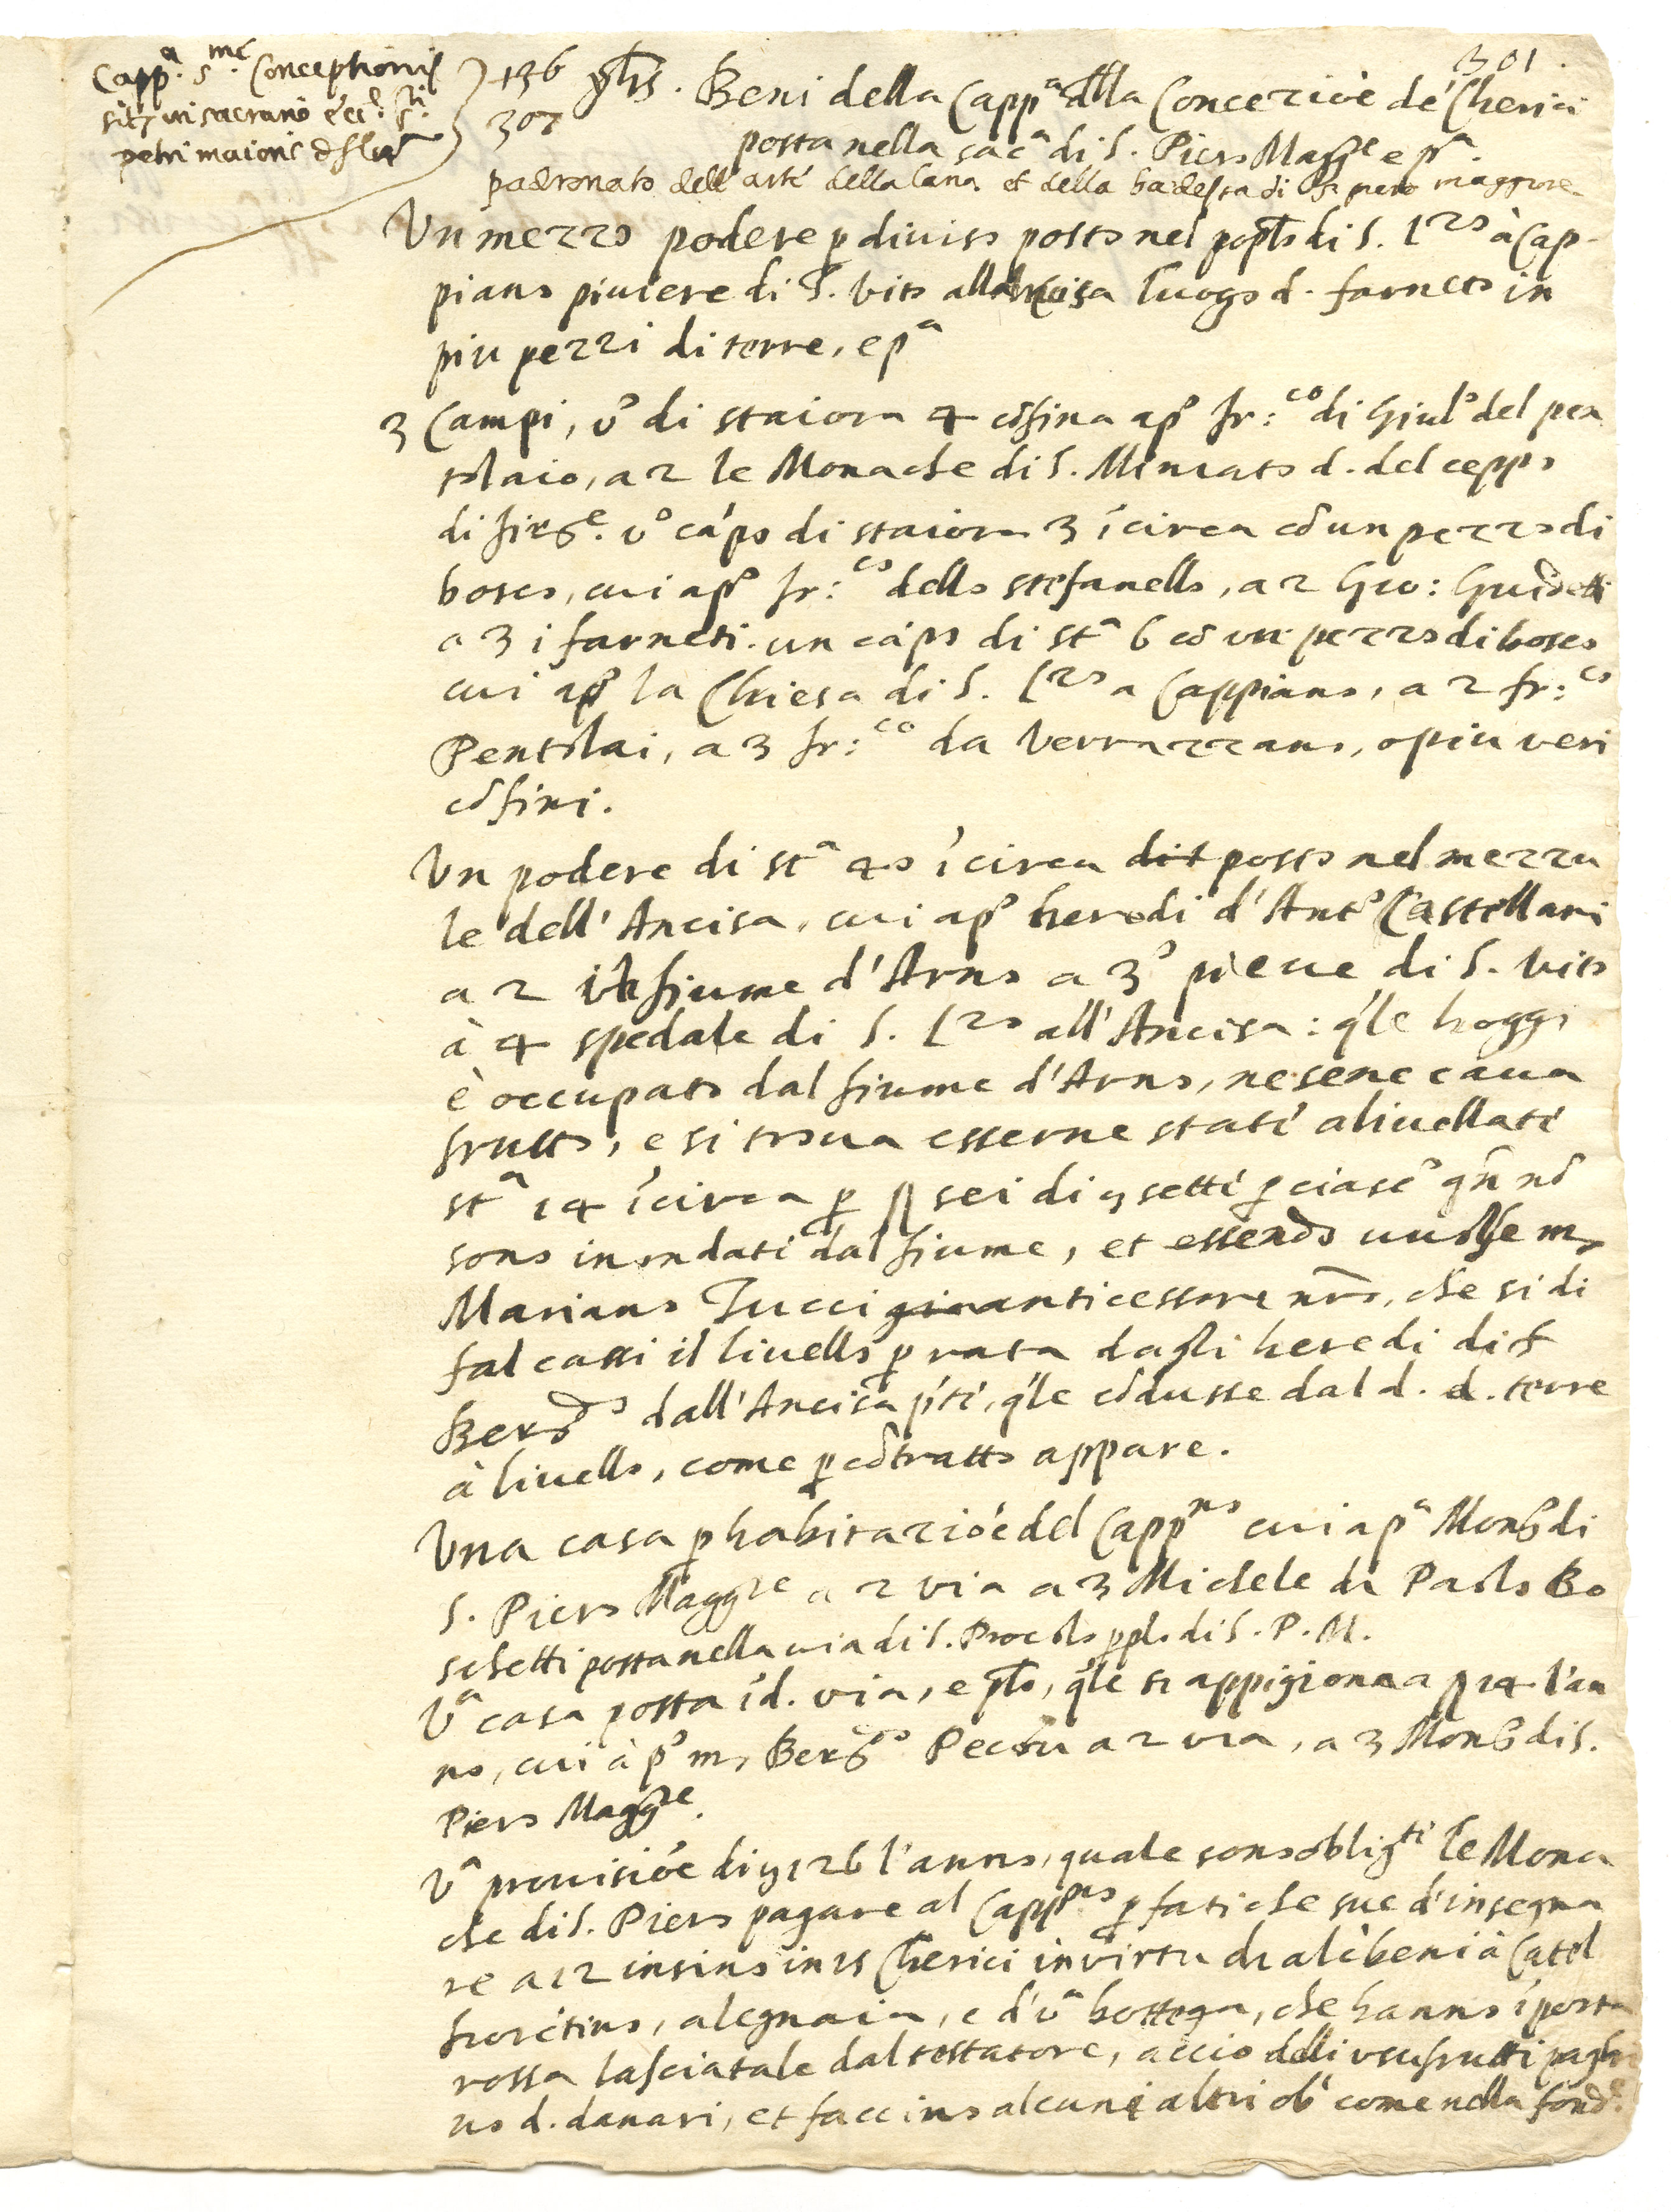 301.
Capp.a S.me Conceptionis
sit. in sacrario ecc. S.ti
petri maioris de flor.
136
307
yhs. Beni della Capp.a d'lla Concezióe de' Cherici
posta nella sac.a di S. Piero Magg.re e p.a
padronato dell'arte della lana et della badessa di S. piero maggiore
Un mezzo podere p diviso posto nel pop.lo di S. L.zo à Cap-
piano piviere di S. Vito all'Ancisa luogo d. farneto in
piu pezzi di terre, e p.a
3 Campi, 1.o di staiora 4 cōfina ap.o fr:co di Giul.o del pen
tolaio, a 2 le Monache di S. Miniato d. del ceppo
di firēze. 1.o cápo di staiora 3 ī circa cō un pezzo di
bosco, cui ap.o fr:co dello stefanello, a 2 Gio: Guidetti
a 3 i farneti. un cápo di st.a 6 cō un pezzo di bosco
cui ap.o la Chiesa di S. L.zo a Cappiano, a 2 fr:co
Pentolai, a 3 fr:co da Verrazzano, o piu veri
cōfini.
Un podere di st.a 40 ī circa dit posto nel mezzu
le dell'Ancisa, cui ap.o heredi d'Ant.o Castellani
a 2 il fiume d'Arno a 3.o pieve di S. Vito
à 4 spedale di S. L.zo all'Ancisa: q'le hoggi
è occupato dal fiume d'Arno, ne se ne cava
frutto, e si trova esserne stati alivellati
st.a 14 ī circa p sei di setti p ciasc.o qñ nō
sono inondati dal fiume, et essendo
Mariano Tucci anticessore nr̄o, che si di
falcassi il livello p rata dagli heredi di
Ber.do dall'Ancisa p'ti, q'le cōdusse dal d. d. terre
à livello, come p cōtratto appare.
Una casa p habitazióe del Capp.no cui ap.a Mon. di
S. Piero Magg.re a 2 via a 3 Michele di Paolo Bo
schetti posta nella via di S. Procolo pplo di S. P. M.
V.a casa posta ī d. via, e p.lo, q'le si appigiona 14 l'an
no, cui à p.o m. Ber.do Pecori a 2 via, a 3 Mon. di S.
Piero Magg.re.
V.a provisióe di 126 l'anno, quale sono oblig.ti le Mona
che di S. Piero pagare al Capp.no p fatiche sue d'insegna
re a 12 insino in 15 Cherici in virtu di alc. beni à Castel
fiorétino, a legnaia, e d'v.a bottega, che hanno ī porta
rossa lasciatale dal testatore, accio delli usufrutti pagh
no d. danari, et faccino alcuni altri ob. come nella fond.e